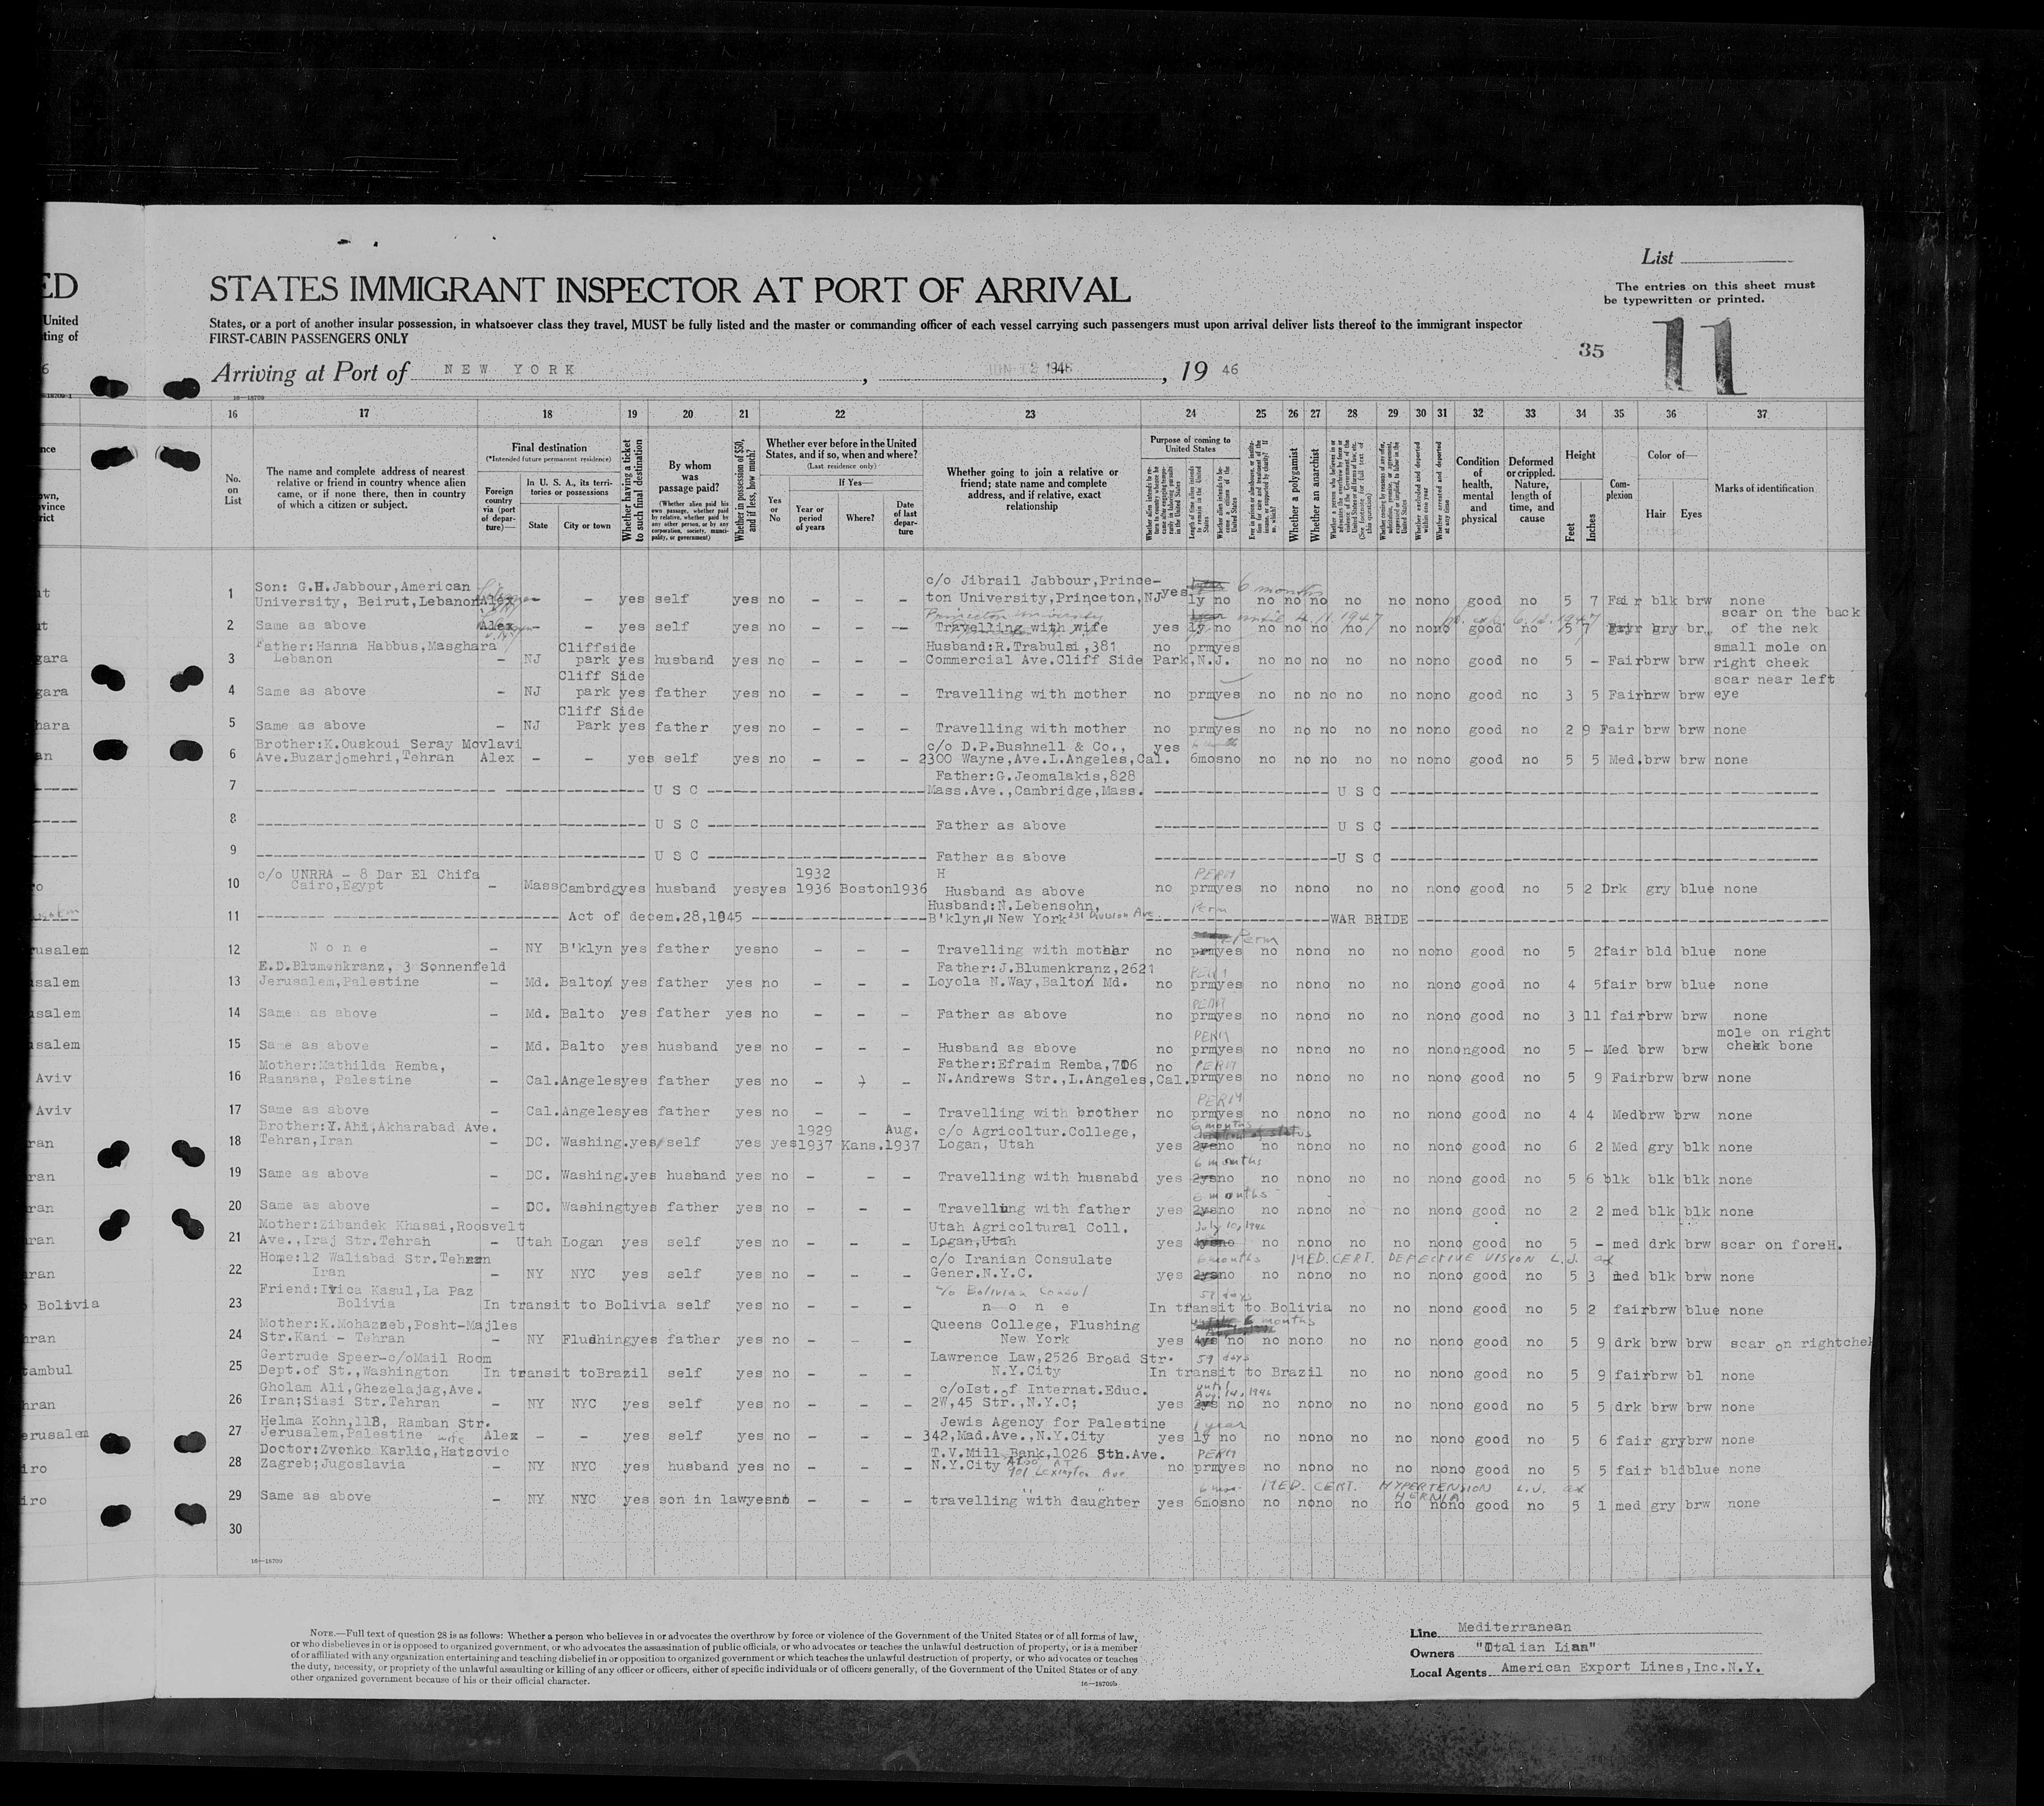 List
The entries on this sheet must
be typewritten or printed.
ED
STATES IMMIGRANT INSPECTOR AT PORT OF ARRIVAL
United
ting of
States, or a port of another insular possession, in whatsoever class they travel, MUST be fully listed and the master or commanding officer of each vessel carrying such passengers must upon arrival deliver lists thereof to the immigrant inspector
FIRST-CABIN PASSENGERS ONLY
35 11
Arriving at Port of NEW YORK, JUN 1946, 19 46
16 17 18 19 20 21 22 23 24 25 26 27 28 29 30 31 32 33 34 35 36 37
No. on List
The name and complete address of nearest relative or friend in country whence alien came, or if none there, then in country of which a citizen or subject.
Final destination
(*Intended future permanent residence)
Foreign country via (port of departure)—
In U. S. A., its territories or possessions
State
City or town
Whether having a ticket to such final destination
By whom was passage paid?
(Whether alien paid his own passage, whether paid by relative, whether paid by any other person, or by any corporation, society, municipality, or government)
Whether in possession of $50, and if less, how much?
Whether ever before in the United States, and if so, when and where?
(Last residence only)
Yes or No
If Yes—
Year or period of years
Where?
Date of last departure
Whether going to join a relative or friend; state name and complete address, and if relative, exact relationship
Purpose of coming to United States
Whether a polygamist
Whether an anarchist
Whether arrested and deported at any time
Condition of health, mental and physical
Deformed or crippled. Nature, length of time, and cause
Height
Feet
Inches
Complexion
Color of—
Hair
Eyes
Marks of identification
1 Son: G.H.Jabbour,American
University, Beirut,Lebanon Alex - - yes self yes no - - - c/o Jibrail Jabbour,Prince-
ton University,Princeton,NJ yes ly no 6 months no no no no no nono good no 5 7 Fair blk brw none
2 Same as above Alex - - yes self yes no - - - Travelling with wife yes ly no until 1947 no no no no no nono good no 5 7 gry br. scar on the back
of the nek
3 Father:Hanna Habbus,Masghara
Lebanon - NJ Cliffside
park yes husband yes no - - - Husband:R.Trabulsi,381
Commercial Ave.Cliff Side Park,N.J. no prmyes no no no no no nono good no 5 - Fairbrw brw small mole on
right cheek
4 Same as above - NJ Cliff Side
park yes father yes no - - - Travelling with mother no prmyes no no no no no nono good no 3 5 Fairbrw brw scar near left
eye
5 Same as above - NJ Cliff Side
Park yes father yes no - - - Travelling with mother no prmyes no no no no no nono good no 2 9 Fair brw brw none
6 Brother:K.Ouskoui Seray Movlavi
Ave.Buzarjomehri,Tehran Alex - - yes self yes no - - - c/o D.P.Bushnell & Co.,
2300 Wayne,Ave.L.Angeles,Cal. yes 6mosno no no no no no nono good no 5 5 Med.brw brw none
7 U S C Father:G.Jeomalakis,828
Mass.Ave.,Cambridge,Mass. U S C
8 U S C Father as above U S C
9 U S C Father as above U S C
10 c/o UNRRA - 8 Dar El Chifa
Cairo,Egypt - Mass Cambrdg yes husband yes yes 1932
1936 Boston 1936 H
Husband as above no PERM prmyes no nono no no nono good no 5 2 Drk gry blue none
11 Act of decem.28,1945 Husband:N.Lebensohn,
B'klyn, New York 231 Division Ave Perm WAR BRIDE
12 None - NY B'klyn yes father yesno - - - Travelling with mother no Perm prmyes no nono no no nono good no 5 2 fair bld blue none
13 E.D.Blumenkranz, 3 Sonnenfeld
Jerusalem,Palestine - Md. Balto yes father yes no - - - Father:J.Blumenkranz,2621
Loyola N.Way,Balto Md. no PERM prmyes no nono no no nono good no 4 5 fair brw blue none
14 Same as above - Md. Balto yes father yes no - - - Father as above no PERM prmyes no nono no no nono good no 3 11 fairbrw brw none
15 Same as above - Md. Balto yes husband yes no - - - Husband as above no PERM prmyes no nono no no nonongood no 5 - Med brw brw mole on right
cheek bone
16 Mother:Mathilda Remba,
Raanana, Palestine - Cal.Angelesyes father yes no - - - Father:Efraim Remba,706
N.Andrews Str.,L.Angeles,Cal. no PERM prmyes no nono no no nono good no 5 9 Fairbrw brw none
17 Same as above - Cal.Angelesyes father yes no - - - Travelling with brother no PERM prmyes no nono no no nono good no 4 4 Medbrw brw none
18 Brother:Y.Ahi,Akharabad Ave.
Tehran,Iran - DC. Washing.yes self yes yes 1929
1937 Kans. Aug.
1937 c/o Agricoltur.College,
Logan, Utah yes 6 months 2ysno no nono no no nono good no 6 2 Med gry blk none
19 Same as above - DC. Washing.yes husband yes no - - - Travelling with husnabd yes 6 months 2ysno no nono no no nono good no 5 6 blk blk blk none
20 Same as above - DC. Washingtyes father yes no - - - Travelling with father yes 6 months 2ysno no nono no no nono good no 2 2 med blk blk none
21 Mother:Zibandek Khasai,Roosvelt
Ave.,Iraj Str.Tehran - Utah Logan yes self yes no - - - Utah Agricoltural Coll.
Logan,Utah yes July 10, 1946 no nono no no nono good no 5 - med drk brw scar on foreH.
22 Home:12 Waliabad Str.Tehran
Iran - NY NYC yes self yes no - - - c/o Iranian Consulate
Gener.N.Y.C. yes 6 months 2ysno MED. CERT. DEFECTIVE VISION L.J. no nono no no nono good no 5 3 med blk brw none
23 Friend:Ivica Kasul,La Paz
Bolivia In transit to Bolivia self yes no - - - c/o Bolivian Consul
none 59 days In transit to Bolivia no no nono good no 5 2 fairbrw blue none
24 Mother:K.Mohazzeb,Posht-Majles
Str.Kani - Tehran - NY Flushingyes father yes no - - - Queens College, Flushing
New York yes 6 months 4ys no no nono no no nono good no 5 9 drk brw brw scar on rightchek
25 Gertrude Speer-c/oMail Room
Dept.of St.,Washington In transit toBrazil self yes no - - - Lawrence Law,2526 Broad Str.
N.Y.City 59 days In transit to Brazil no no nono good no 5 9 fairbrw bl none
26 Gholam Ali,Ghezelajag,Ave.
Iran;Siasi Str.Tehran - NY NYC yes self yes no - - - c/oIst.of Internat.Educ.
2W,45 Str.,N.Y.C; yes until Aug. 14, 1946 2ys no no nono no no nono good no 5 5 drk brw brw none
27 Helma Kohn,11B, Ramban Str.
Jerusalem,Palestine wife Alex - - yes self yes no - - - Jewis Agency for Palestine
342,Mad.Ave.,N.Y.City yes 1 year 1y no no nono no no nono good no 5 6 fair grybrw none
28 Doctor:Zvonko Karlic,Hatzovic
Zagreb;Jugoslavia - NY NYC yes husband yes no - - - T.V.Mill Bank,1026 5th.Ave.
N.Y.City ALSO AT 701 Lexington Ave no PERM prmyes no nono no no nono good no 5 5 fair bldblue none
29 Same as above - NY NYC yes son in lawyesno - - - travelling with daughter yes 6 mos. 6mosno MED. CERT. HYPERTENSION HERNIA L.J. no nono no no nono good no 5 1 med gry brw none
30
16—18709
NOTE.—Full text of question 28 is as follows: Whether a person who believes in or advocates the overthrow by force or violence of the Government of the United States or of all forms of law,
or who disbelieves in or is opposed to organized government, or who advocates the assassination of public officials, or who advocates or teaches the unlawful destruction of property, or is a member
of or affiliated with any organization entertaining and teaching disbelief in or opposition to organized government or which teaches the unlawful destruction of property, or who advocates or teaches
the duty, necessity, or propriety of the unlawful assaulting or killing of any officer or officers, either of specific individuals or of officers generally, of the Government of the United States or of any
other organized government because of his or their official character.
16—18709b
Line Mediterranean
Owners "Italian Line"
Local Agents American Export Lines,Inc.N.Y.